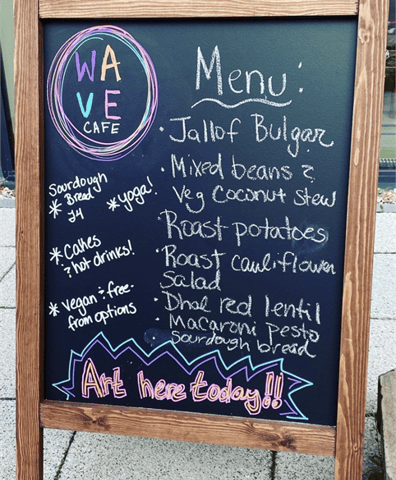 WA
VE
CAFE
Menu:
· Jallof Bulgar
· Mixed beans &
Veg Coconut Stew
· Roast potatoes
· Roast cauliflower
Salad
· Dhal red lentil
· Macaroni pesto
Sourdough bread
Sourdough
* Bread
£4
* yoga!
* Cakes
& hot drinks!
* Vegan & free-
from options
Art here today!!